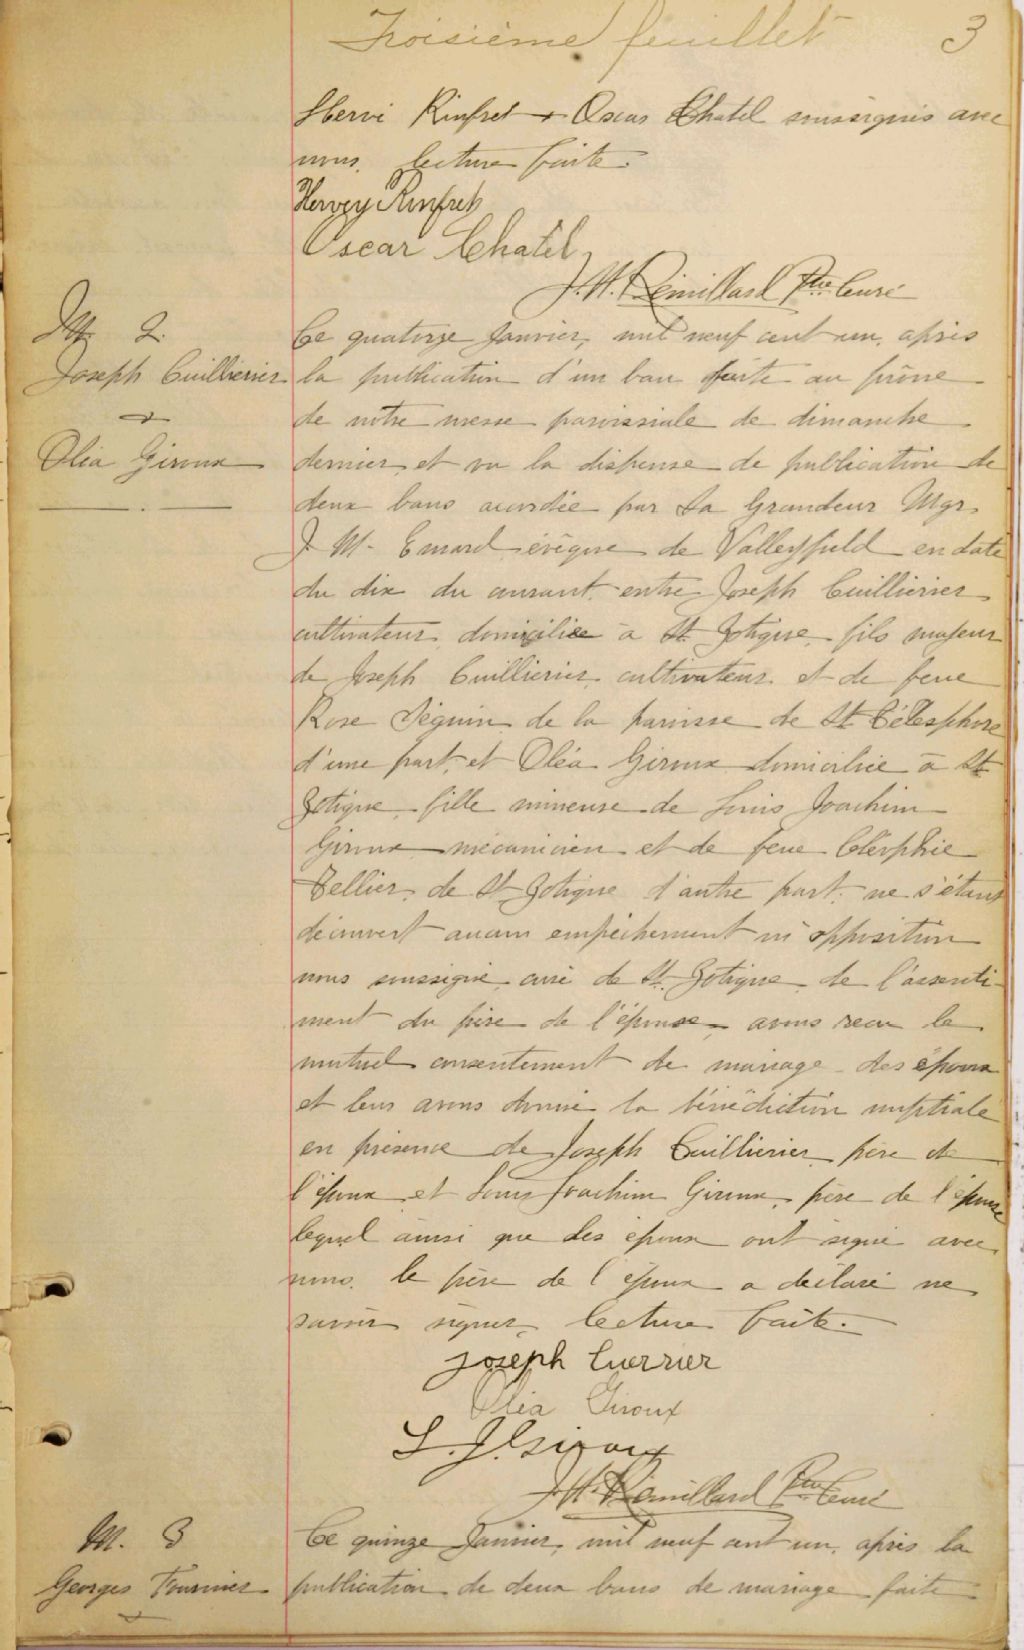 Troisième feuillet 3
Hervé Rinfret + Oscar Chatel soussignés avec
nous, lecture faite.
Hervey Rinfret
Oscar Chatel
J. M. Rémillard Ptre Curé
M. 2.
Joseph Cuillierier
+
Oléa Giroux
Ce quatorze Janvier, mil neuf cent un, après
la publication d'un ban faite au prône
de notre messe paroissiale de dimanche
dernier et vu la dispense de publication de
deux bans accordée par Sa Grandeur Mgr.
J. M. Emard évêque de Valleyfield en date
du dix du courant, entre Joseph Cuillierier
cultivateur, domicilié à St Zotique, fils majeur
de Joseph Cuillierier, cultivateur et de feue
Rose Séguin de la paroisse de St Télesphore
d'une part, et Oléa Giroux domiciliée à St
Zotique, fille mineure de Louis Joachim
Giroux mécanicien et de feue Cléophie
Tellier, de St Zotique d'autre part, ne s'étant
découvert aucun empêchement ni opposition
nous soussigné, curé de St. Zotique, de l'assenti-
ment du père de l'épouse, avons reçu le
mutuel consentement de mariage des époux
et leur avons donné la bénédiction nuptiale
en présence de Joseph Cuillierier, père de
l'époux et Louis Joachim Giroux, père de l'épouse
lequel ainsi que les époux ont signé avec
nous. le père de l'époux a déclaré ne
savoir signer, lecture faite.
Joseph Cuerrier
Oléa Giroux
L. J. Giroux
J. M. Rémillard Ptre Curé
M. 3
Georges Fournier
+
Ce quinze Janvier, mil neuf cent un, après la
publication de deux bans de mariage faite